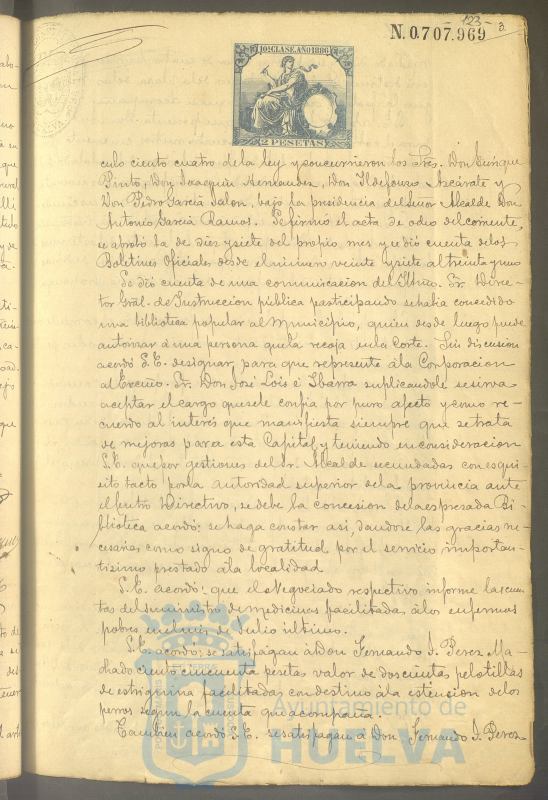 123-
N. 0.707.969
10ª CLASE. AÑO 1886
2 PESETAS
culo ciento cuatro de la ley y concurrieron los Sres. Don Enrique
Pinto, Don Joaquin Hernandez, Don Ildefonso Azcárate y
Don Pedro García Jalon, bajo la presidencia del señor Alcalde Don
Antonio García Ramos. Se firmó el acta de ocho del corriente,
se aprobó la de diez y siete del propio mes y se dió cuenta de los
Boletines Oficiales desde el número veinte y siete al treinta y uno
Se dió cuenta de una comunicacion del Iltmo. Sr. Direc-
tor Gral. de Instruccion pública participando se habia concedido
una biblioteca popular al Municipio, quien desde luego puede
autorizar á una persona que la recoja en la Corte. Sin discusion
acordó S.E. designar, para que represente á la Corporacion
al Excmo. Sr. Don José Lois é Ibarra suplicandole se sirva
aceptar el cargo que se le confia por puro afecto y como re-
cuerdo al interés que manifiesta siempre que se trata
de mejoras para esta Capital, y teniendo en consideracion
S.E. que por gestiones del Sr. Alcalde secundadas con esqui-
sito tacto por la autoridad superior de la provincia ante
el Centro Directivo, se debe la concesion de la espresada Bi-
blioteca acordó: se haga constar asi, dandose las gracias ne-
cesarias como signo de gratitud por el servicio importan-
tisimo prestado á la localidad
S.E. acordó: que el Negociado respectivo informe las cuen-
tas del suministro de medicinas facilitadas á los enfermos
pobres en el mes de Julio último.
S.E. acordó: se satisfagan á Don Fernando J. Perez Ma-
chado ciento cincuenta pesetas valor de doscientas pelotillas
de estrignina facilitadas con destino á la estincion de los
perros segun la cuenta que acompaña.
Tambien acordó S.E. se satisfagan á Don Fernando J. Perez
Ayuntamiento de
HUELVA